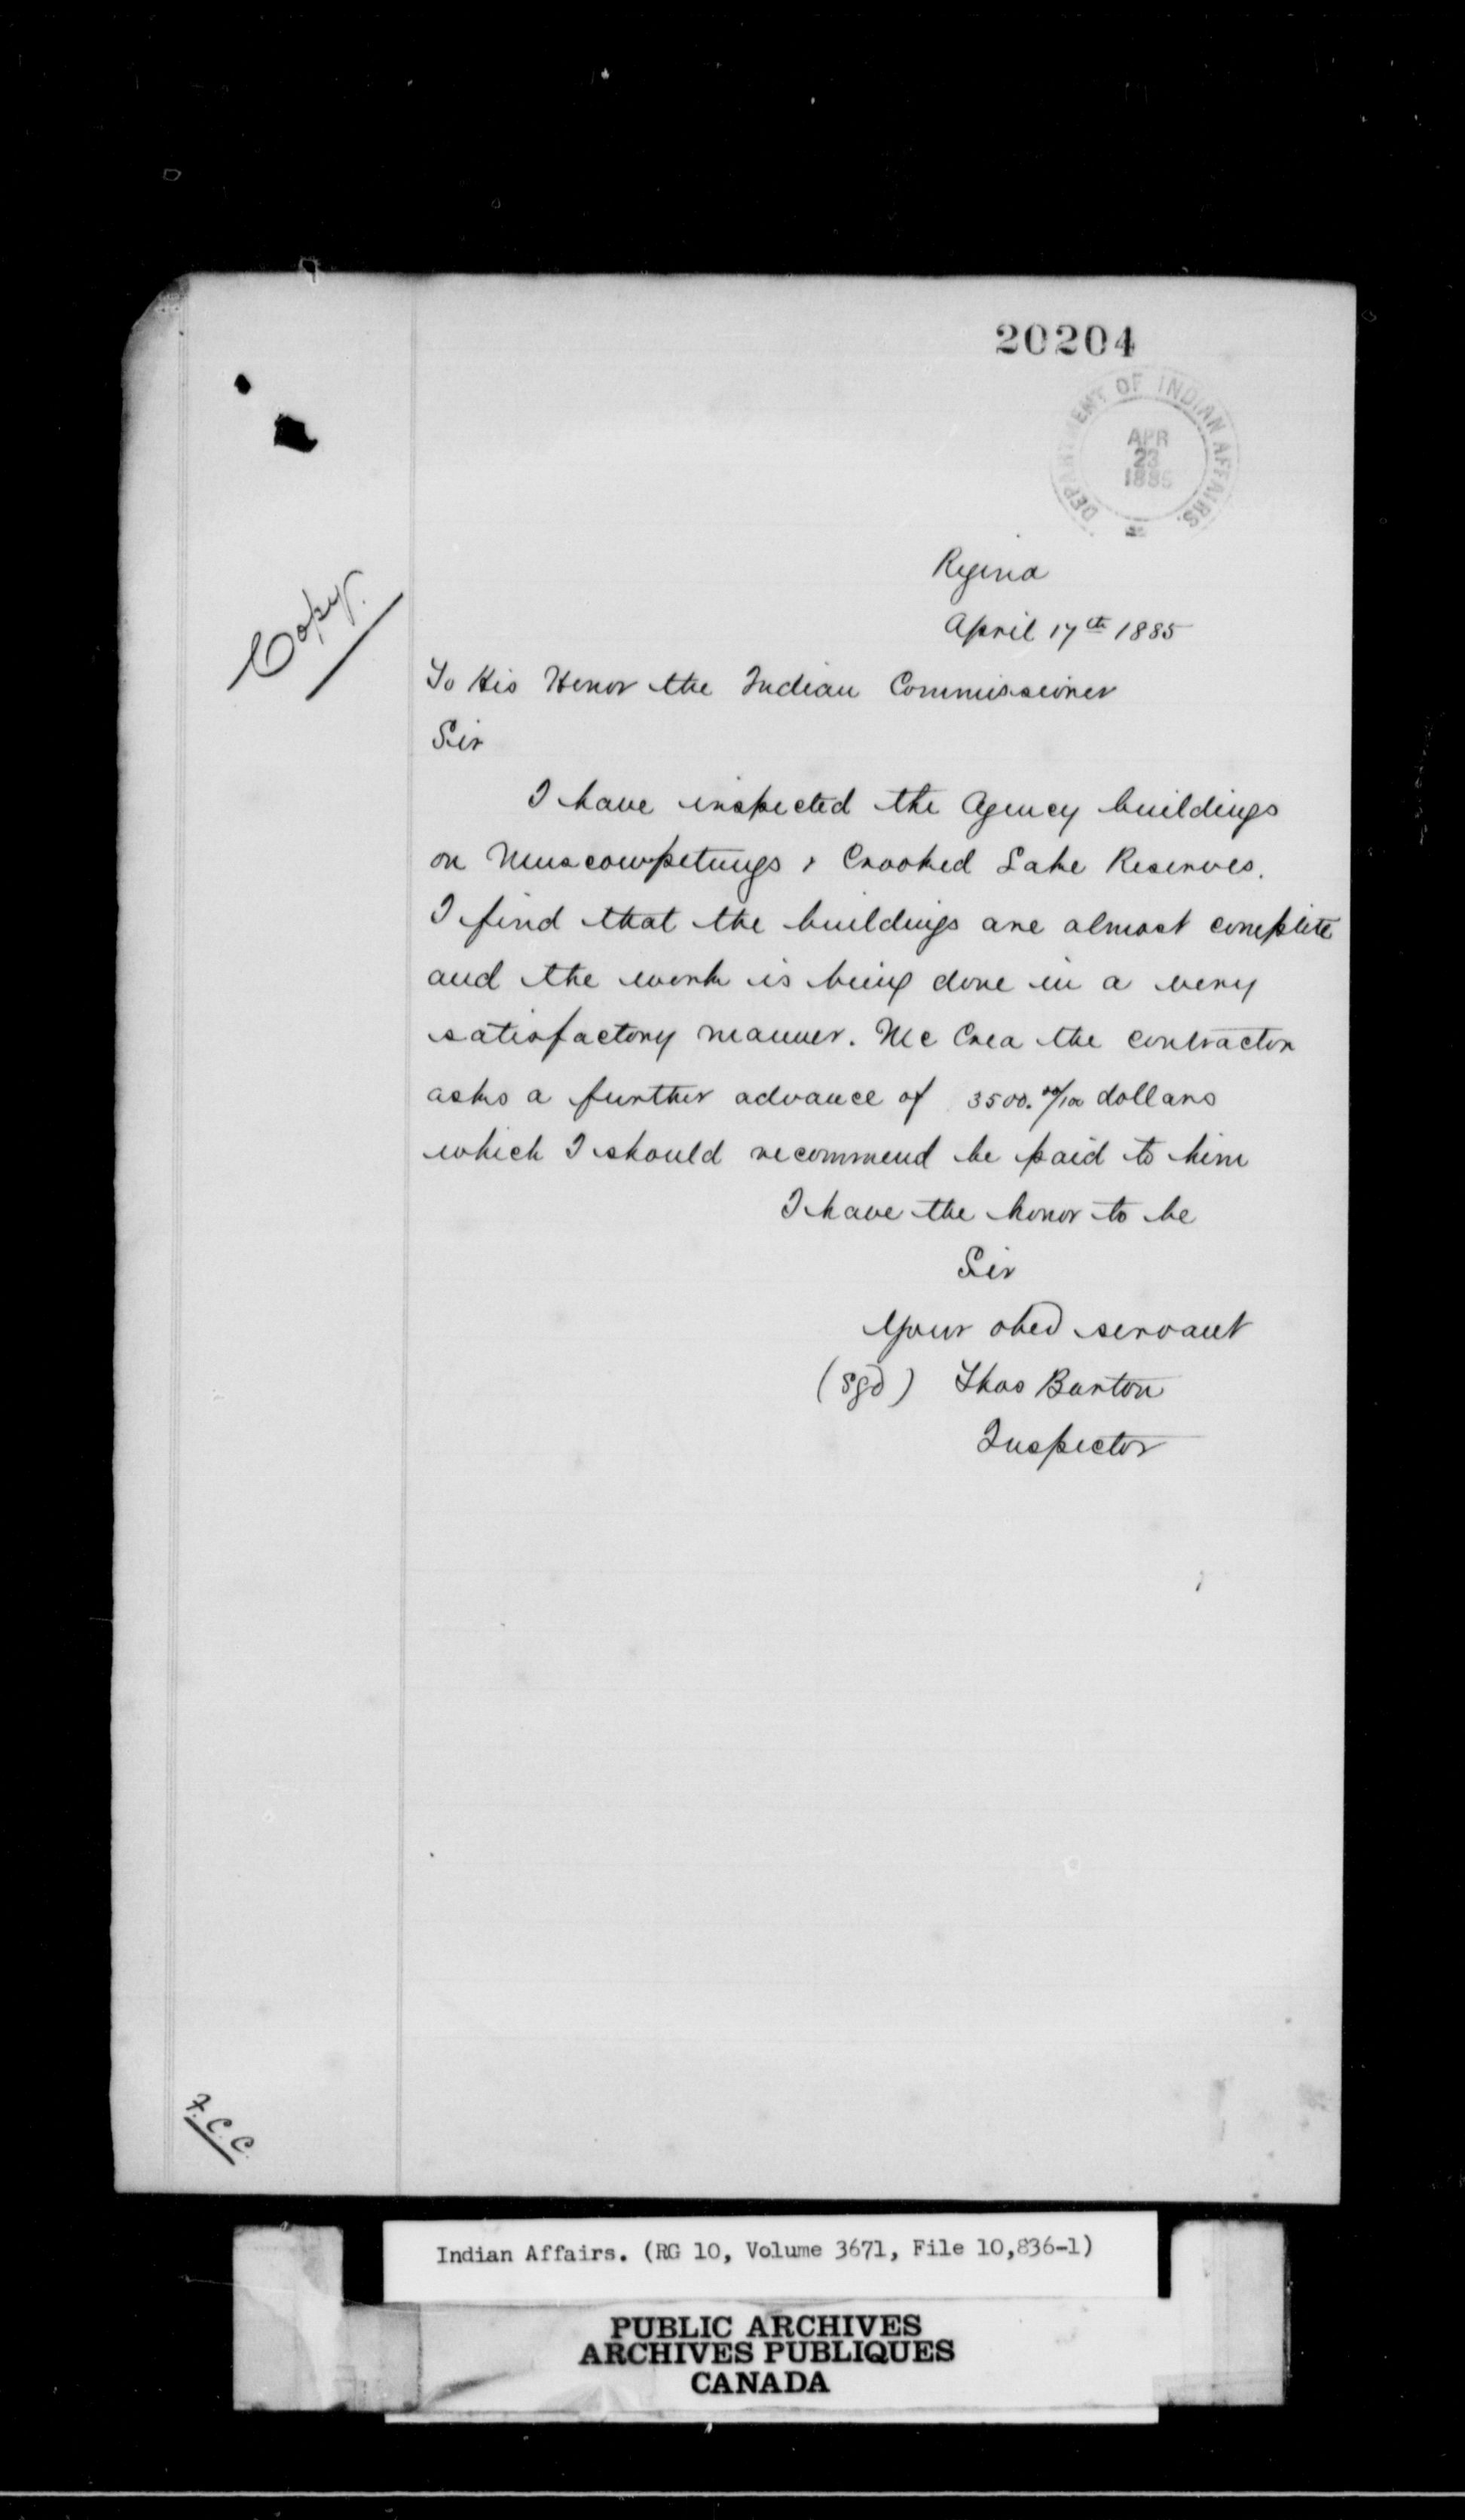 20204
DEPARTMENT OF INDIAN AFFAIRS.
APR
23
1885
Copy.
Regina
April 17th 1885
To His Honor the Indian Commissioner
Sir
I have inspected the Agency buildings
on Muscowpetungs & Crooked Lake Reserves.
I find that the buildings are almost complete
and the work is being done in a very
satisfactory manner. Mc Crea the contractor
asks a further advance of 3500.00/100 dollars
which I should recommend be paid to him
I have the honor to be
Sir
Your obed servant
(sgd) Thos Barton
Inspector
F.C.C.
Indian Affairs. (RG 10, Volume 3671, File 10,836-1)
PUBLIC ARCHIVES
ARCHIVES PUBLIQUES
CANADA